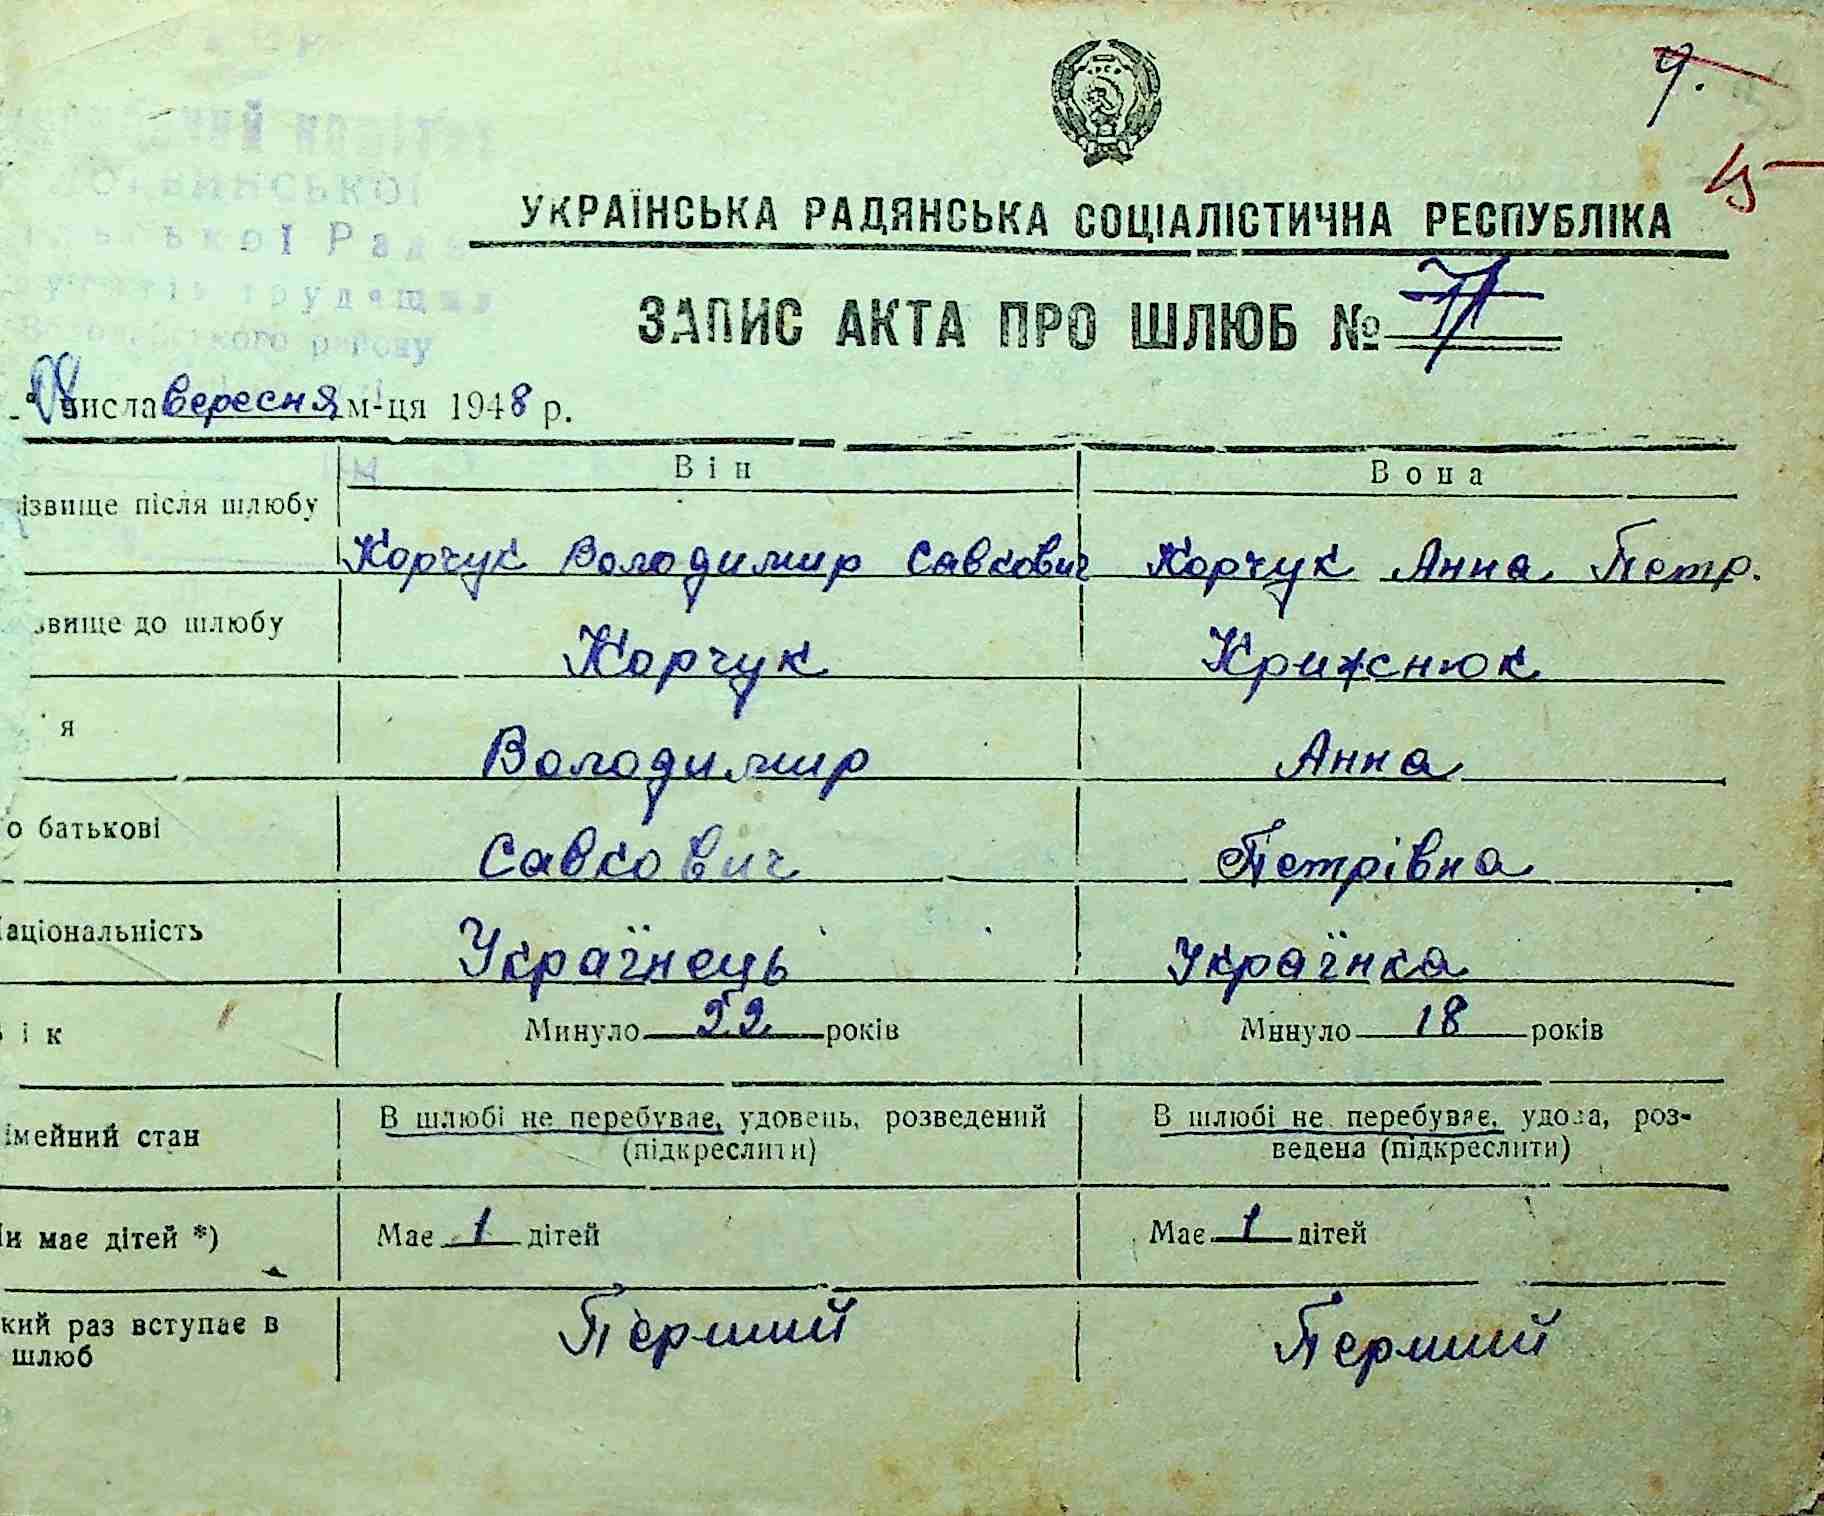 9.
15
УКРАЇНСЬКА РАДЯНСЬКА СОЦІАЛІСТИЧНА РЕСПУБЛІКА
ької Рада
трудящих
району
ЗАПИС АКТА ПРО ШЛЮБ №
числа вересня м-ця 1948 р.
Він Вона
ізвище після шлюбу Корчук Володимир Савкович Корчук Анна Петр.
звище до шлюбу Корчук Крижнюк
я Володимир Анна
о батькові Савкович Петрівна
Національність Українець Українка
і к Минуло 22 років Минуло 18 років
імейний стан В шлюбі не перебуває, удовець, розведений (підкреслити) В шлюбі не перебуває, удова, роз-
ведена (підкреслити)
и має дітей *) Має 1 дітей Має 1 дітей
кий раз вступає в Перший Перший
шлюб